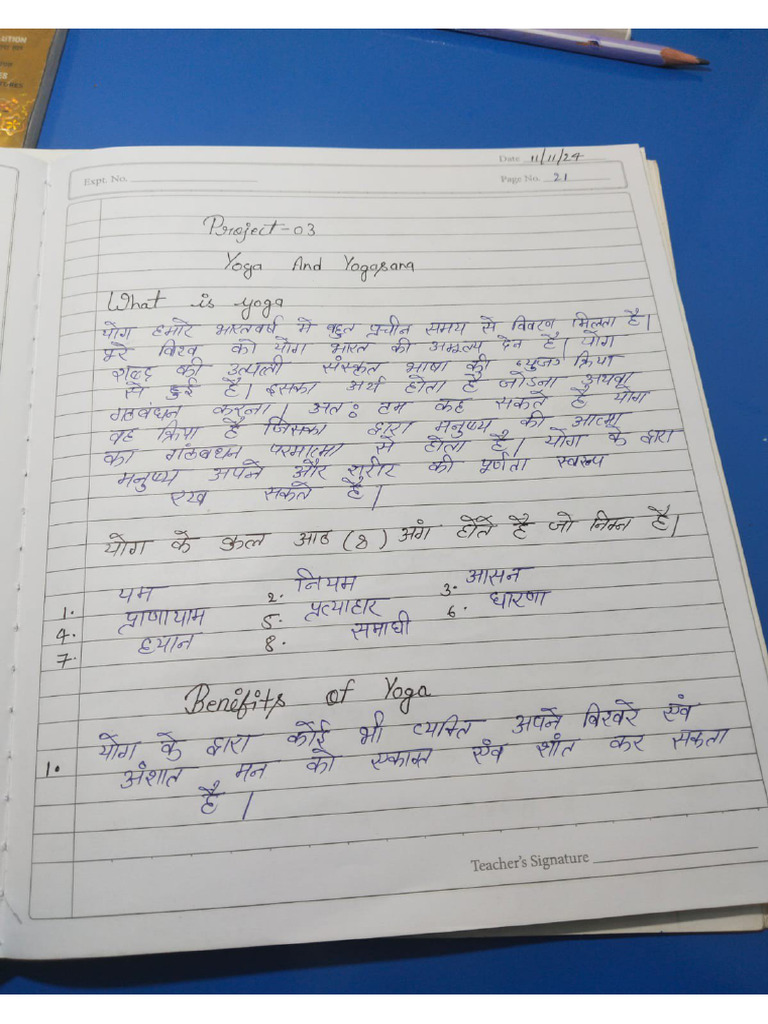 LUTION
ES
Date 11/11/24
Expt. No.
Page No. 21
Project-03
Yoga And Yogasana
What is yoga
योग हमारे भारतवर्ष मे बहुत प्राचीन समय से विवरण मिलता है।
पुरे विश्व को योग भारत की अमूल्य देन है। योग
शब्द की उत्पत्ती संस्कृत भाषा की युज क्रिया
से हुई है। इसका अर्थ होता है जोडना अथवा
गठबंधन करना। अतः हम कह सकते है योग
वह क्रिया है जिसका द्वारा मनुष्य की आत्मा
का गठबंधन परमात्मा से होता है। योग के द्वारा
मनुष्य अपने और शरीर की पूर्णता स्वरूप
रख सकते है।
योग के कुल आठ (8) अंग होते है जो निम्न है।
1. यम 2. नियम 3. आसन
4. प्राणायाम 5. प्रत्याहार 6. धारणा
7. ध्यान 8. समाधी
Benefits of Yoga
1. योग के द्वारा कोई भी व्यक्ति अपने बिखरे एंव
अंशात मन को एकाक्त एंव शांत कर सकता
है।
Teacher's Signature